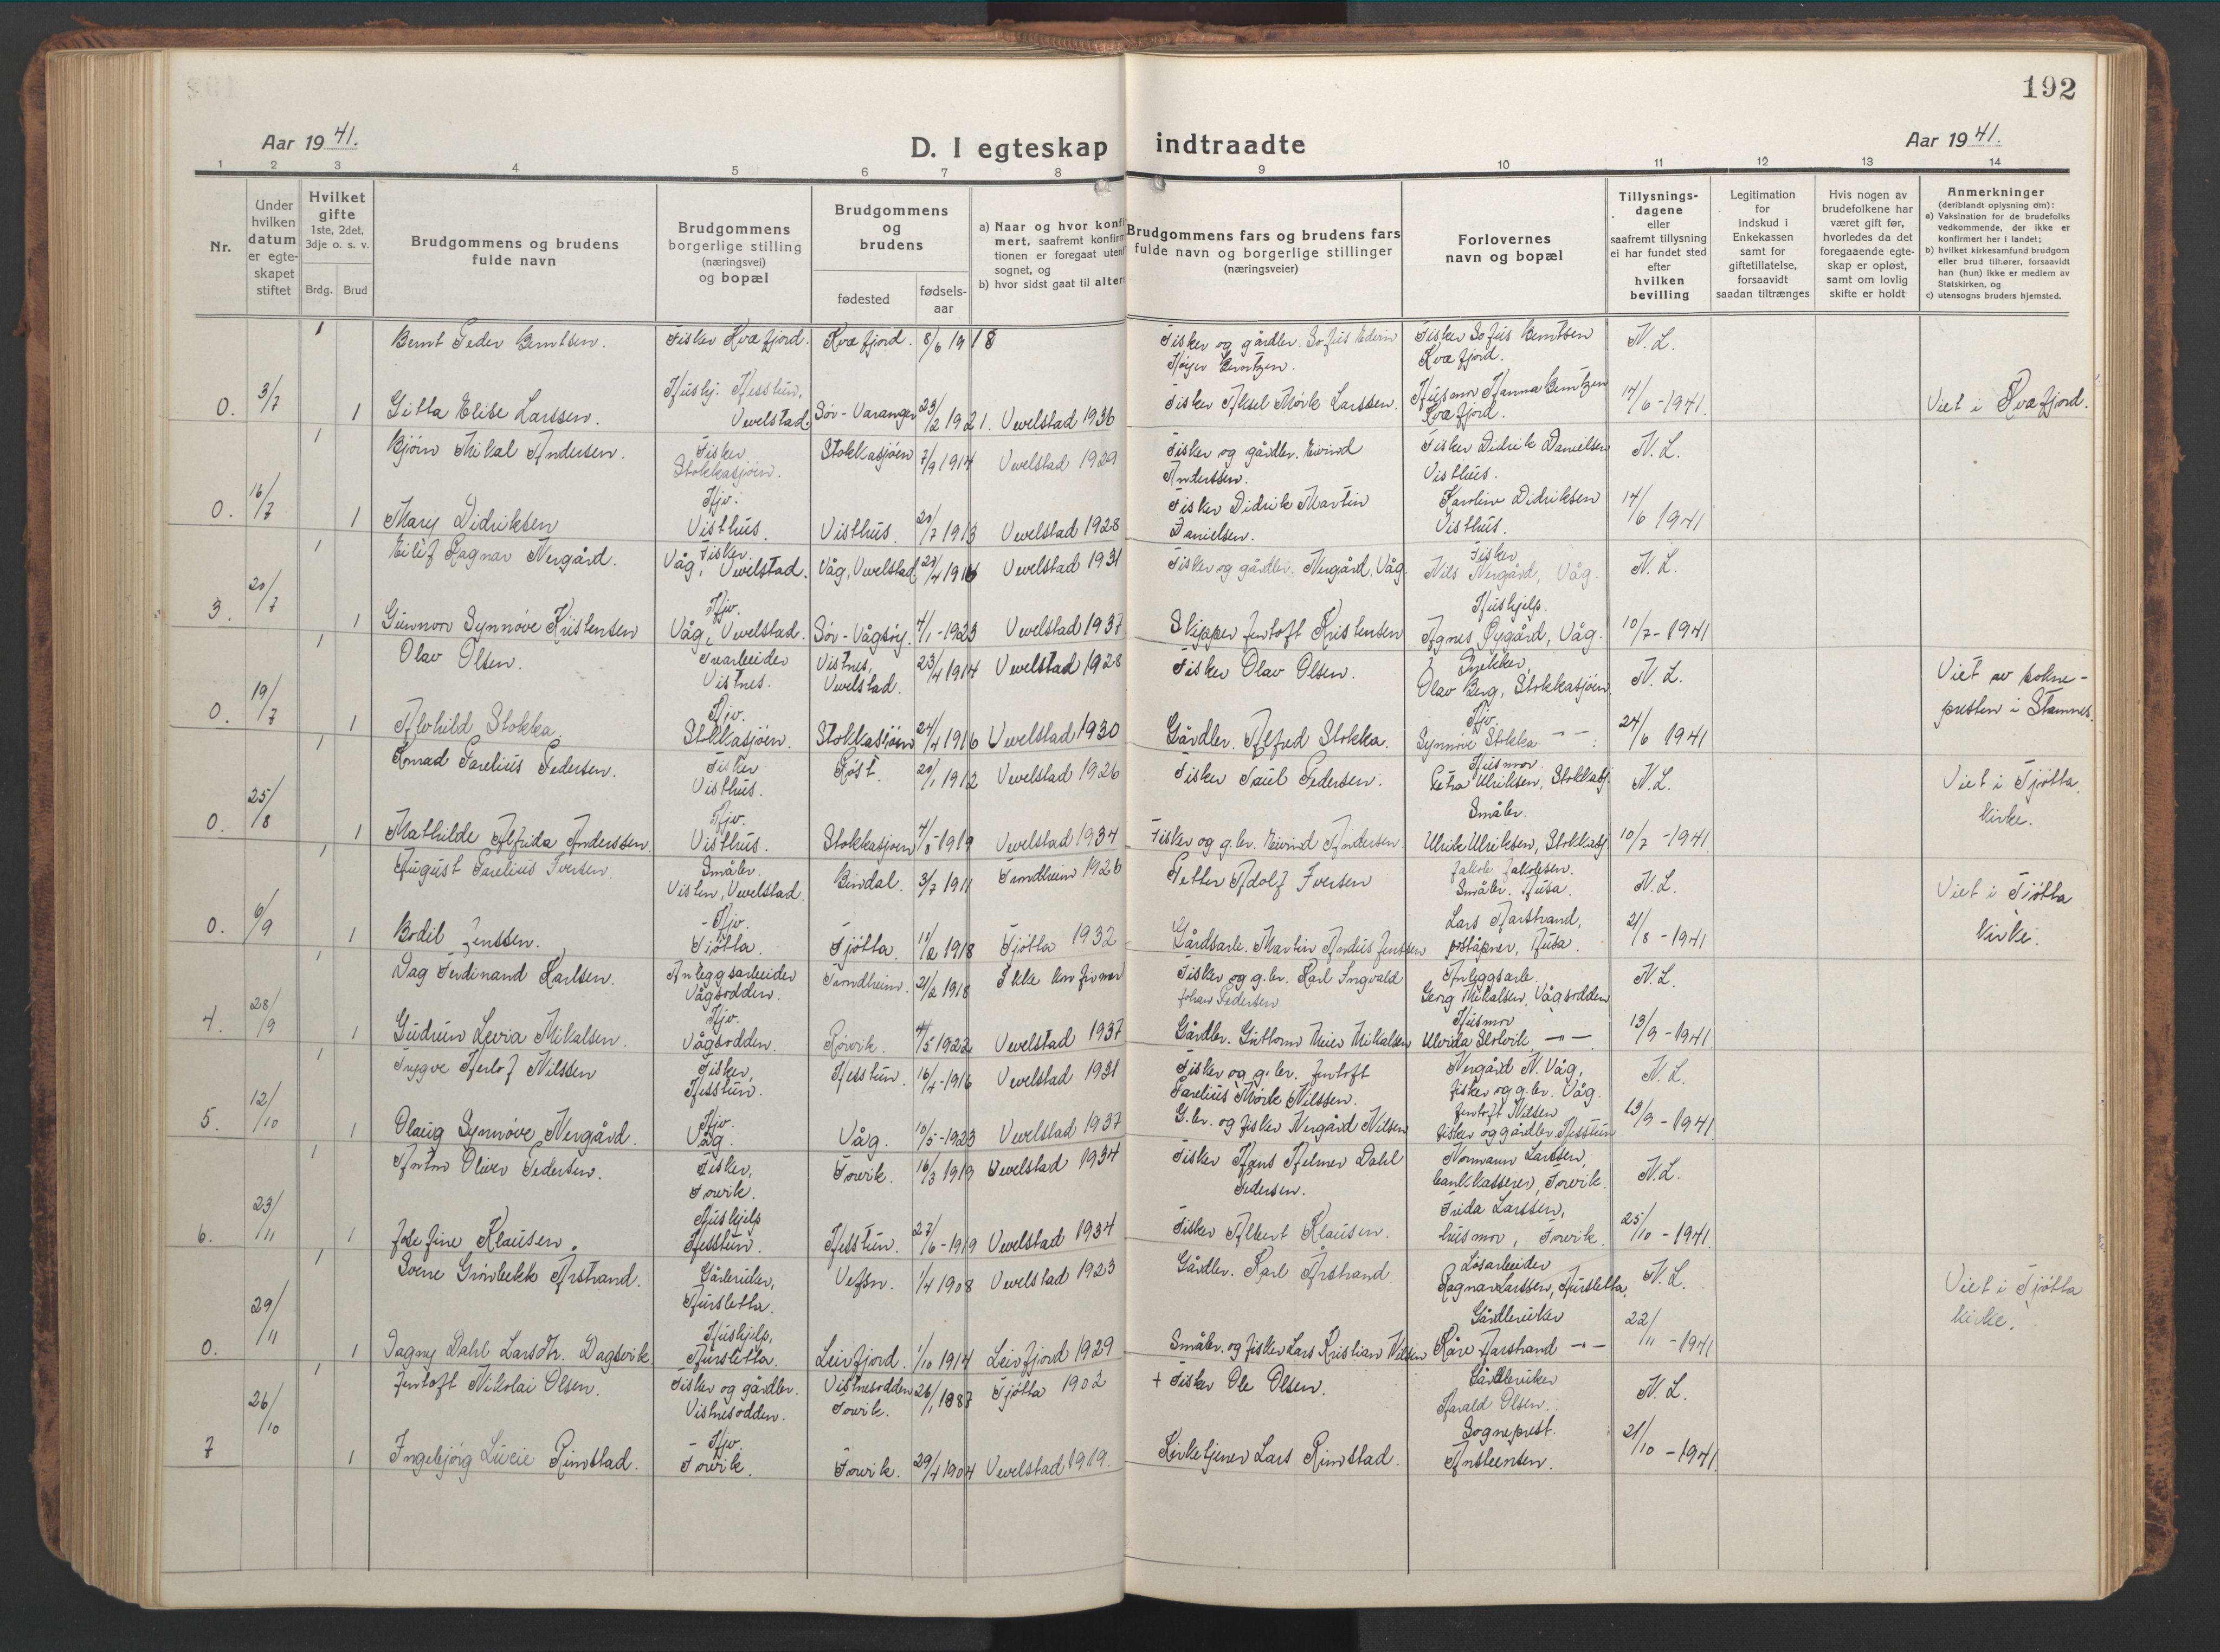 192
Aar 1941.
D. I egteskap indtraadte
Aar 1941.
1 2 3 4 5 6 7 8 9 10 11 12 13 14
Nr.
Under hvilken datum er egte-skapet stiftet
Hvilket gifte 1ste, 2det, 3dje o. s. v.
Brdg. Brud
Brudgommens og brudens fulde navn
Brudgommens borgerlige stilling (næringsvei) og bopæl
Brudgommens og brudens
fødested
fødsels-aar
a) Naar og hvor konfir mert, saafremt konfirm tionen er foregaat uten sognet, og
b) hvor sidst gaat til alter
Brudgommens fars og brudens fars fulde navn og borgerlige stillinger (næringsveier)
Forlovernes navn og bopæl
Tillysnings-dagene eller saafremt tillysning ei har fundet sted efter hvilken bevilling
Legitimation for indskud i Enkekassen samt for giftetillatelse, forsaavidt saadan tiltrænges
Hvis nogen av brudefolkene har været gift før, hvorledes da det foregaaende egte-skap er opløst, samt om lovlig skifte er holdt
Anmerkninger (deriblandt oplysning om):
a) Vaksination for de brudefolks vedkommende, der ikke er konfirmert her i landet;
b) hvilket kirkesamfund brudgom eller brud tilhører, forsaavidt han (hun) ikke er medlem av Statskirken, og
c) utensogns bruders hjemsted.
1 Bernt Peder Berntsen. Fisker Kvæfjord. Kvæfjord. 8/6 1918 Fisker og gårdbr. Sofus Edvin Høyer Berntzen. Fisker Sofus Berntsen Kvæfjord. N. L.
0. 3/7 1 Gitta Elise Larssen. Hushj. Hesstun, Vevelstad. Sør-Varanger 23/2 1921. Vevelstad 1936 Fisker Aksel Mørk Larssen. Husmor Hanna Berntzen Kvæfjord. 14/6-1941. Viet i Kvæfjord.
1 Bjørn Mikal Andersen. Fisker Stokkasjøen. Stokkasjøen 7/9 1914 Vevelstad 1929 Fisker og gårdbr. Eivind Anderssen. Fisker Didrik Danielsen Visthus. N. L.
0. 16/7 1 Mary Didriksen Hjv. Visthus. Visthus. 20/7 1913 Vevelstad 1928 Fisker Didrik Martin Danielsen. Karoline Didriksen Visthus. 14/6 1941
1 Eilif Ragnar Nergård. Fisker. Våg, Vevelstad. Våg, Vevelstad 29/4 1916 Vevelstad 1931 Fisker og gårdbr. Nergård, Våg. Fisker Nils Nergård, Våg. N. L.
3. 20/7 1 Gunnvor Synnøve Kristensen Hjv. Våg, Vevelstad. Sør-Vågsøy. 4/1-1923 Vevelstad 1937 Skipper Jentoft Kristensen Hushjelp. Agnes Øygård, Våg. 10/7-1941
1 Olav Olsen. Trearbeider Vistnes. Vistnes, Vevelstad. 23/4 1914 Vevelstad 1928 Fisker Olav Olsen. Snekker, Olav Berg, Stokkasjøen. N. L. Viet av sokne-presten i Stamnes.
0. 19/7 1 Alvhild Stokka. Hjv. Stokkasjøen. Stokkasjøen 24/4 1916 Vevelstad 1930 Gårdbr. Alfred Stokka. Hjv. Synnøve Stokka – – 24/6 1941
1 Konrad Parelius Pedersen. Fisker Visthus. Røst. 20/1 1912 Vevelstad 1926 Fisker Paul Pedersen. Husmor Petra Ulriksen, Stokkasj N. L. Viet i Tjøtta kirke.
0. 25/8 1 Mathilde Alfrida Anderssen. Hjv. Visthus. Stokkasjøen 4/8-1919 Vevelstad 1934 Fisker og g.br. Eivind Andersen. Småbr. Ulrik Ulriksen, Stokkasj 10/7-1941
1 August Parelius Iversen. Småbr. Visten, Vevelstad. Bindal. 3/7 1911 Trondheim 1926 Petter Adolf Iversen Jakob Jakobsen. Småbr. Husa. N. L. Viet i Tjøtta kirke.
0. 6/9 1 Bodil Jenssen. - Hjv. Tjøtta. Tjøtta. 1918 Tjøtta 1932 Gårdsarb. Martin Andeis Jenssen Lars Aarstrand, poståpner, Husa. 21/8-1941
1 Dag Ferdinand Karlsen. Anleggsarbeider Vågsodden. Trondheim. 21/2 1918 Ikke konfirmer Fisker og g.br. Karl Ingvald Johan Pedersen Anleggsarb. Georg Mikalsen, Vågsodden N. L.
4. 28/9 1 Gudrun Levia Mikalsen. Hjv. Vågsodden. Rørvik. 4/5 1922 Vevelstad 1937 Gårdbr. Guttorm Meier Mikalsen Husmor Ulvida Skolvik –"– 13/9-1941
1 Trygve Herlof Nilssen Fisker, Hesstun. Hesstun. 16/4-1916 Vevelstad 1931 Fisker og g.br. Jentoft Parelius Mørk Nilssen. Nergård N. Våg, fisker og g.br. Våg. N. L.
5. 12/10 1 Olaug Synnøve Nergård. Hjv. Våg. Våg. 10/5-1923 Vevelstad 1937 G.br. og fisker Nergård Nilsen Jentoft Nilsen fisker og gårdbr Hesstun 13/9-1941
1 Morten Oliver Pedersen. Fisker, Forvik. Forvik. 16/3 1919 Vevelstad 1934 Fisker Hans Helmer Dahl Pedersen. Normann Larssen, bankkasserer, Forvik. N. L.
6. 23/11 1 Josefine Klausen. Hushjelp Hesstun. Hesstun. 27/6-1919 Vevelstad 1934 Fisker Albert Klausen. Frida Larssen, husmor, Forvik. 25/10-1941.
1 Sverre Grønbekk Årstrand. Gårbruker, Aursletta. Vefsn. 1/4 1908 Vevelstad 1923 Gårdbr. Karl Årstrand. Løsarbeider Ragnar Larssen, Aursletta. N. L. Viet i Tjøtta kirke.
0. 29/11 1 Dagny Dahl Larsdtr. Dagsvik Hushjelp, Aursletta. Leirfjord. 1/10 1914 Leirfjord 1929 Småbr. og fisker Lars Kristian Nilsen Gårdbruker Kåre Aarstrand –"– 22/11-1941
1 Jentoft Nikolai Olsen. Fisker og gårdbr. Vistnesodden. Vistnesodden Forvik. 26/1 1887 Tjøtta 1902 + Fisker Ole Olsen. Gårdbruker Harald Olsen. N. L.
7 26/10 1 Ingebjørg Lucie Rimstad. - Hjv. Forvik. Forvik. 29/4 1904 Vevelstad 1919. Kirketjener Lars Rimstad. Sogneprest. Ansteensen. 21/10-1941.